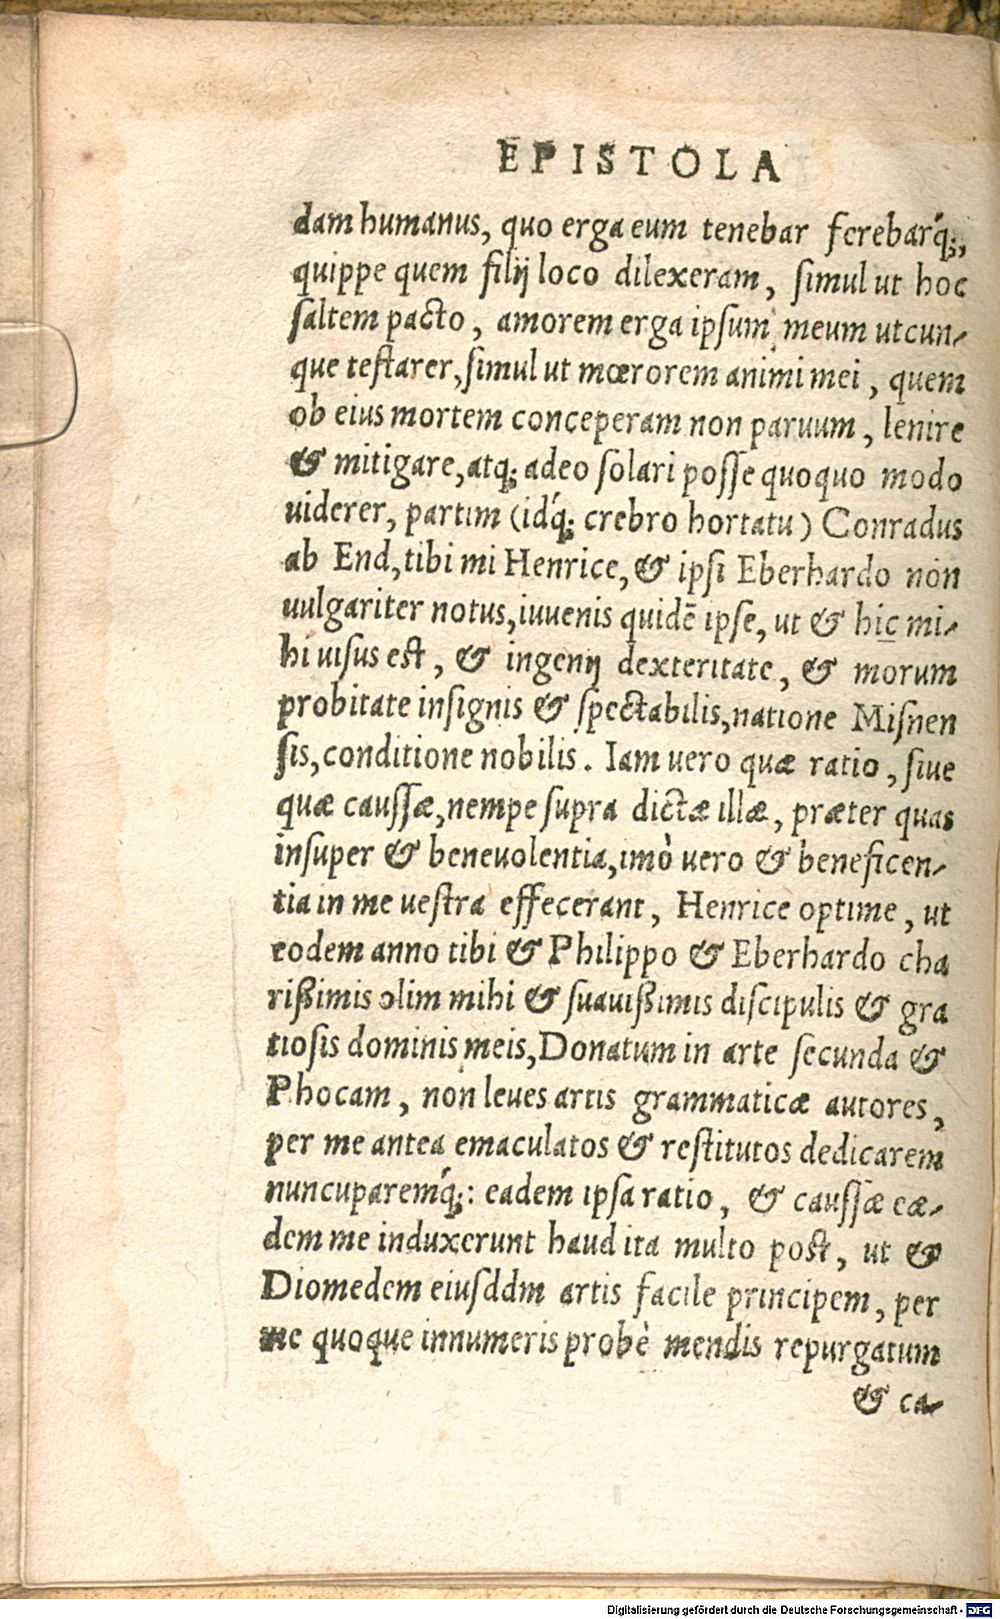 EPISTOLA
dam humanus, quo erga eum tenebar ferebarq́;,
quippe quem filij loco dilexeram, simul ut hoc
saltem pacto, amorem erga ipsum meum utcun-
que testarer, simul ut mœrorem animi mei, quem
ob eius mortem conceperam non paruum, lenire
& mitigare, atq; adeo solari posse quoquo modo
uiderer, partim (idq́; crebro hortatu) Conradus
ab End, tibi mi Henrice, & ipsi Eberhardo non
uulgariter notus, iuvenis quidē ipse, ut & hic mi-
hi uisus est, & ingenij dexteritate, & morum
probitate insignis & spectabilis, natione Misnen
sis, conditione nobilis. Iam uero quæ ratio, siue
quæ caussæ, nempe supra dictæ illæ, præter quas
insuper & benevolentia, imò uero & beneficen-
tia in me uestra effecerant, Henrice optime, ut
eodem anno tibi & Philippo & Eberhardo cha
rißimis olim mihi & suauißimis discipulis & gra
tiosis dominis meis, Donatum in arte secunda &
Phocam, non leues artis grammaticæ autores,
per me antea emaculatos & restitutos dedicarem
nuncuparemq́;: eadem ipsa ratio, & caussæ eæ-
dem me induxerunt haud ita multo post, ut &
Diomedem eiusddm artis facile principem, per
me quoque innumeris probè mendis repurgatum
& ca-
Digitalisierung gefördert durch die Deutsche Forschungsgemeinschaft - DFG